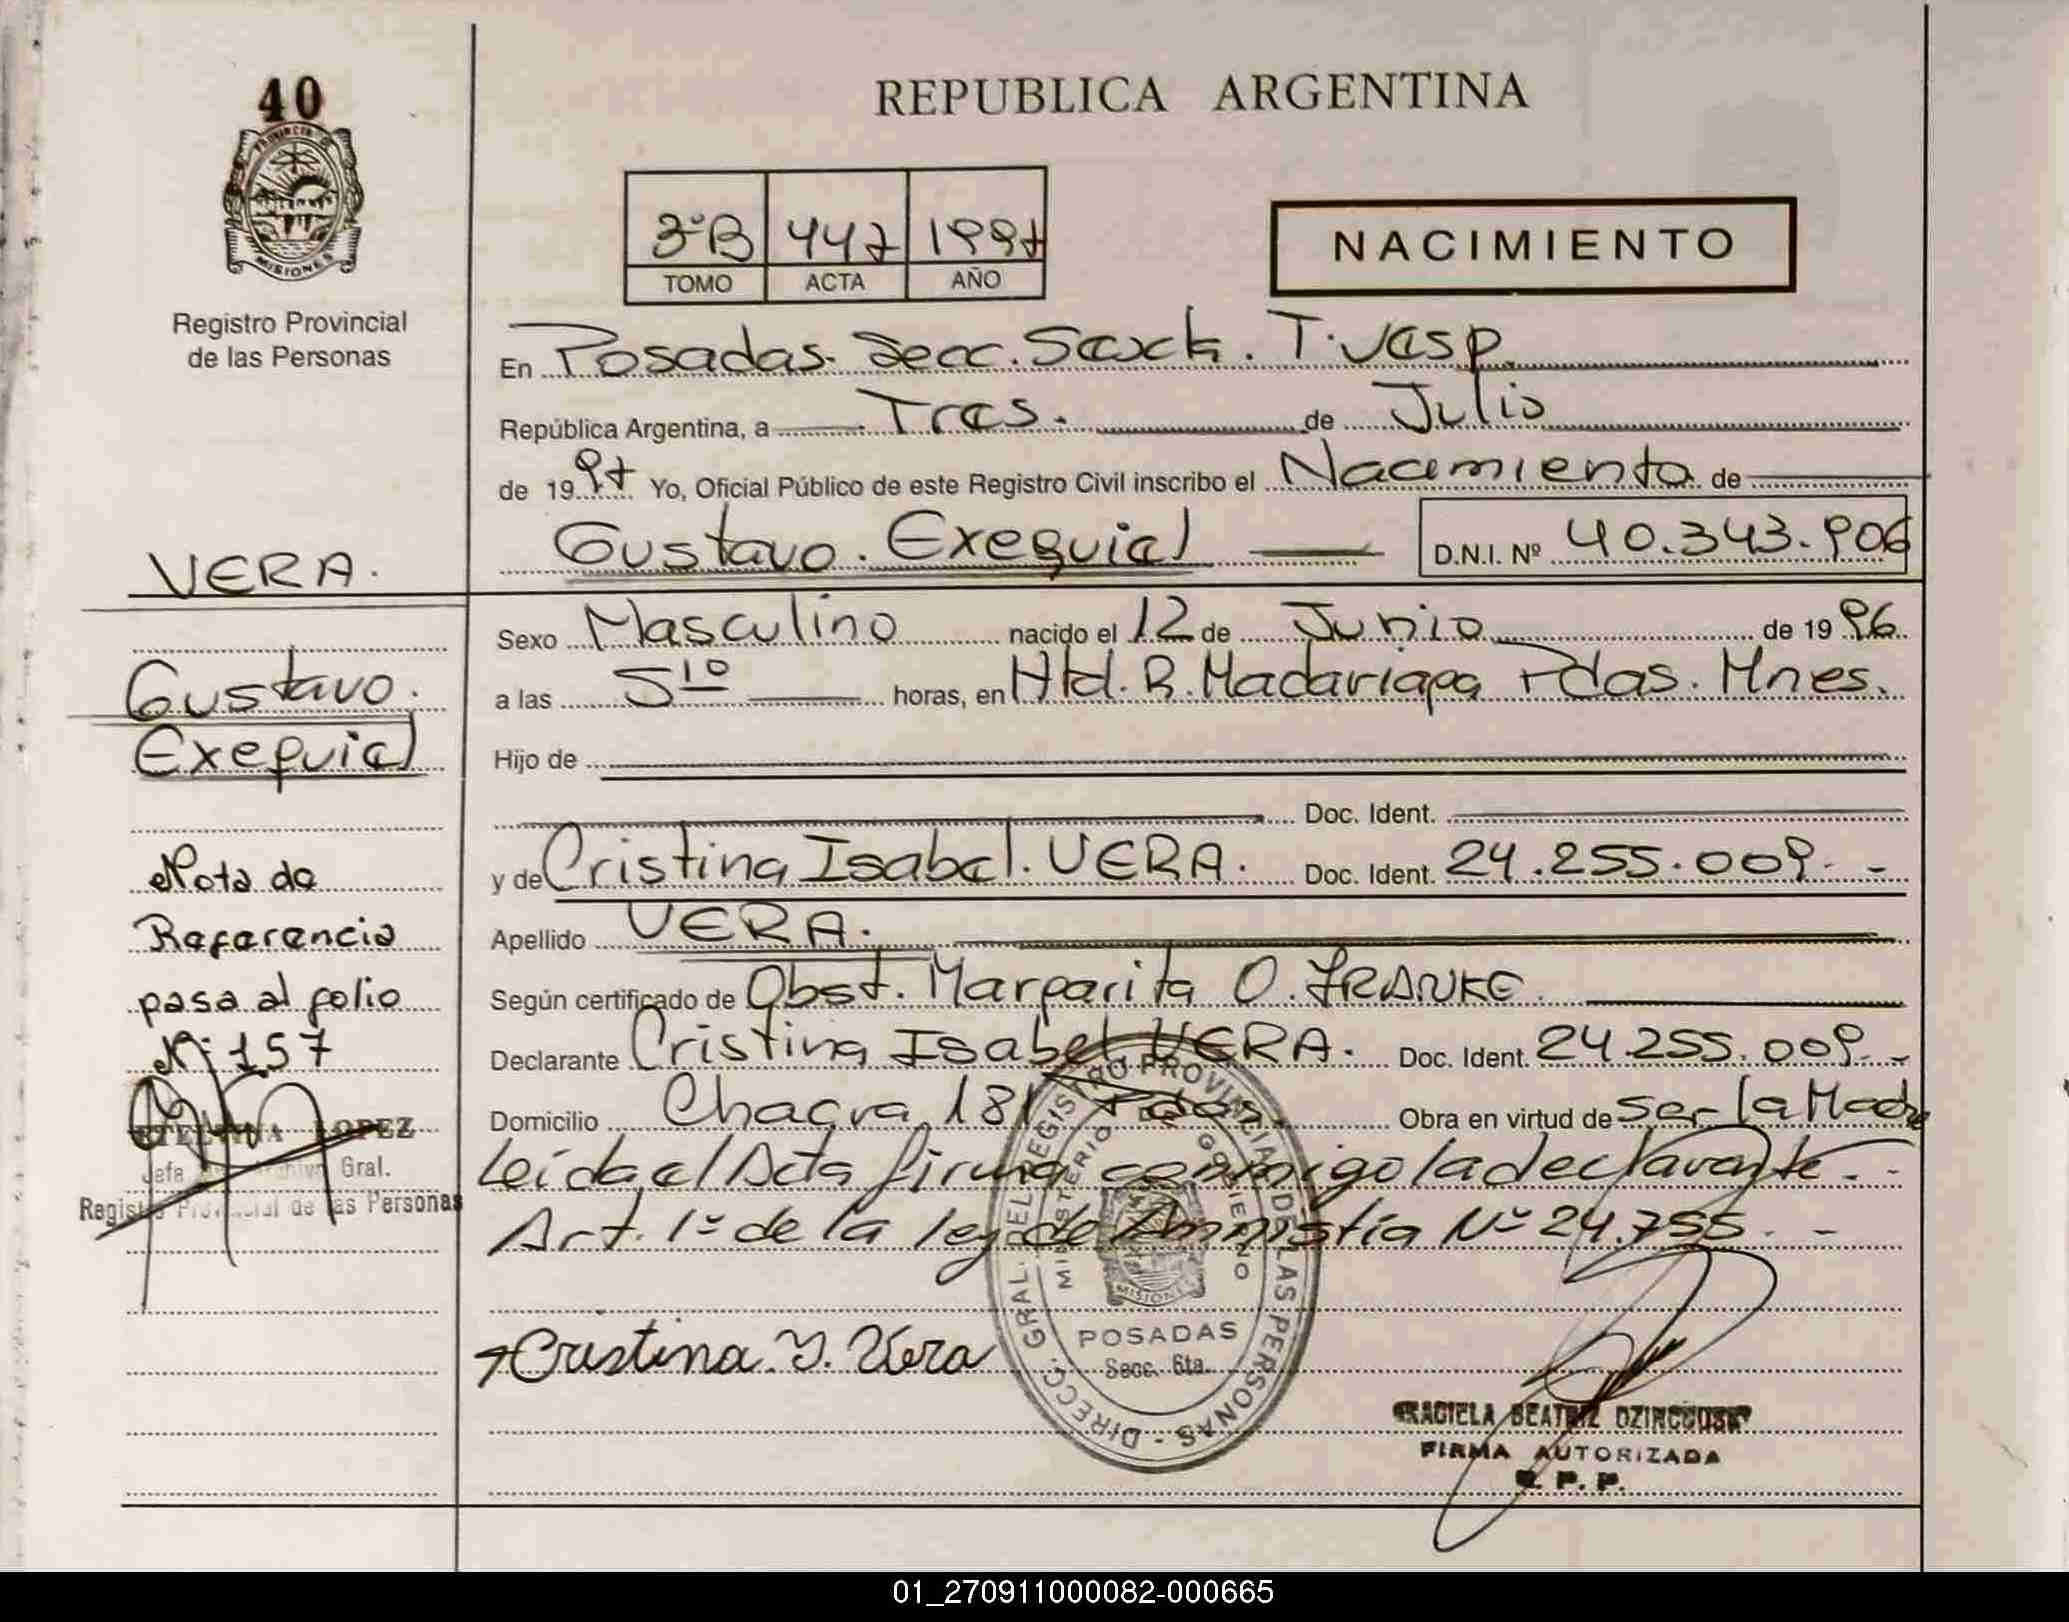 40
PROVINCIA DE
MISIONES
Registro Provincial
de las Personas
VERA.
Gustavo.
Exequiel
Nota de
Referencia
pasa al folio
Nº 157
LOPEZ
Jefe Archivo Gral.
Registro Provincial de las Personas
REPUBLICA ARGENTINA
3ºB 447 1997
TOMO ACTA AÑO
NACIMIENTO
En Posadas. Secc. Sexta. T. Vesp.
República Argentina, a Tres. de Julio
de 1997 Yo, Oficial Público de este Registro Civil inscribo el Nacimiento de
Gustavo. Exequiel D.N.I. Nº 40.343.906
Sexo Masculino nacido el 12 de Junio de 1996.
a las 5 10 horas, en Htd. R. Madariaga Pdas. Mnes.
Hijo de
Doc. Ident.
y de Cristina Isabel. VERA. Doc. Ident. 24.255.009.-
Apellido VERA.
Según certificado de Obst. Margarita O. FRANKE.
Declarante Cristina Isabel VERA. Doc. Ident. 24.255.009.-
Domicilio Chacra 181 Pdas. Obra en virtud de ser la Madre
Leída el Acta firma conmigo la declarante.-
Art. 1º de la ley de Amnistía Nº 24.755. -
Cristina Y. Vera
DIRECC. GRAL. DEL REGISTRO PROVINCIAL DE LAS PERSONAS -
MINISTERIO DE GOBIERNO
MISIONES
POSADAS
Secc. 6ta.
GRACIELA BEATRIZ
FIRMA AUTORIZADA
R. P. P.
01_270911000082-000665